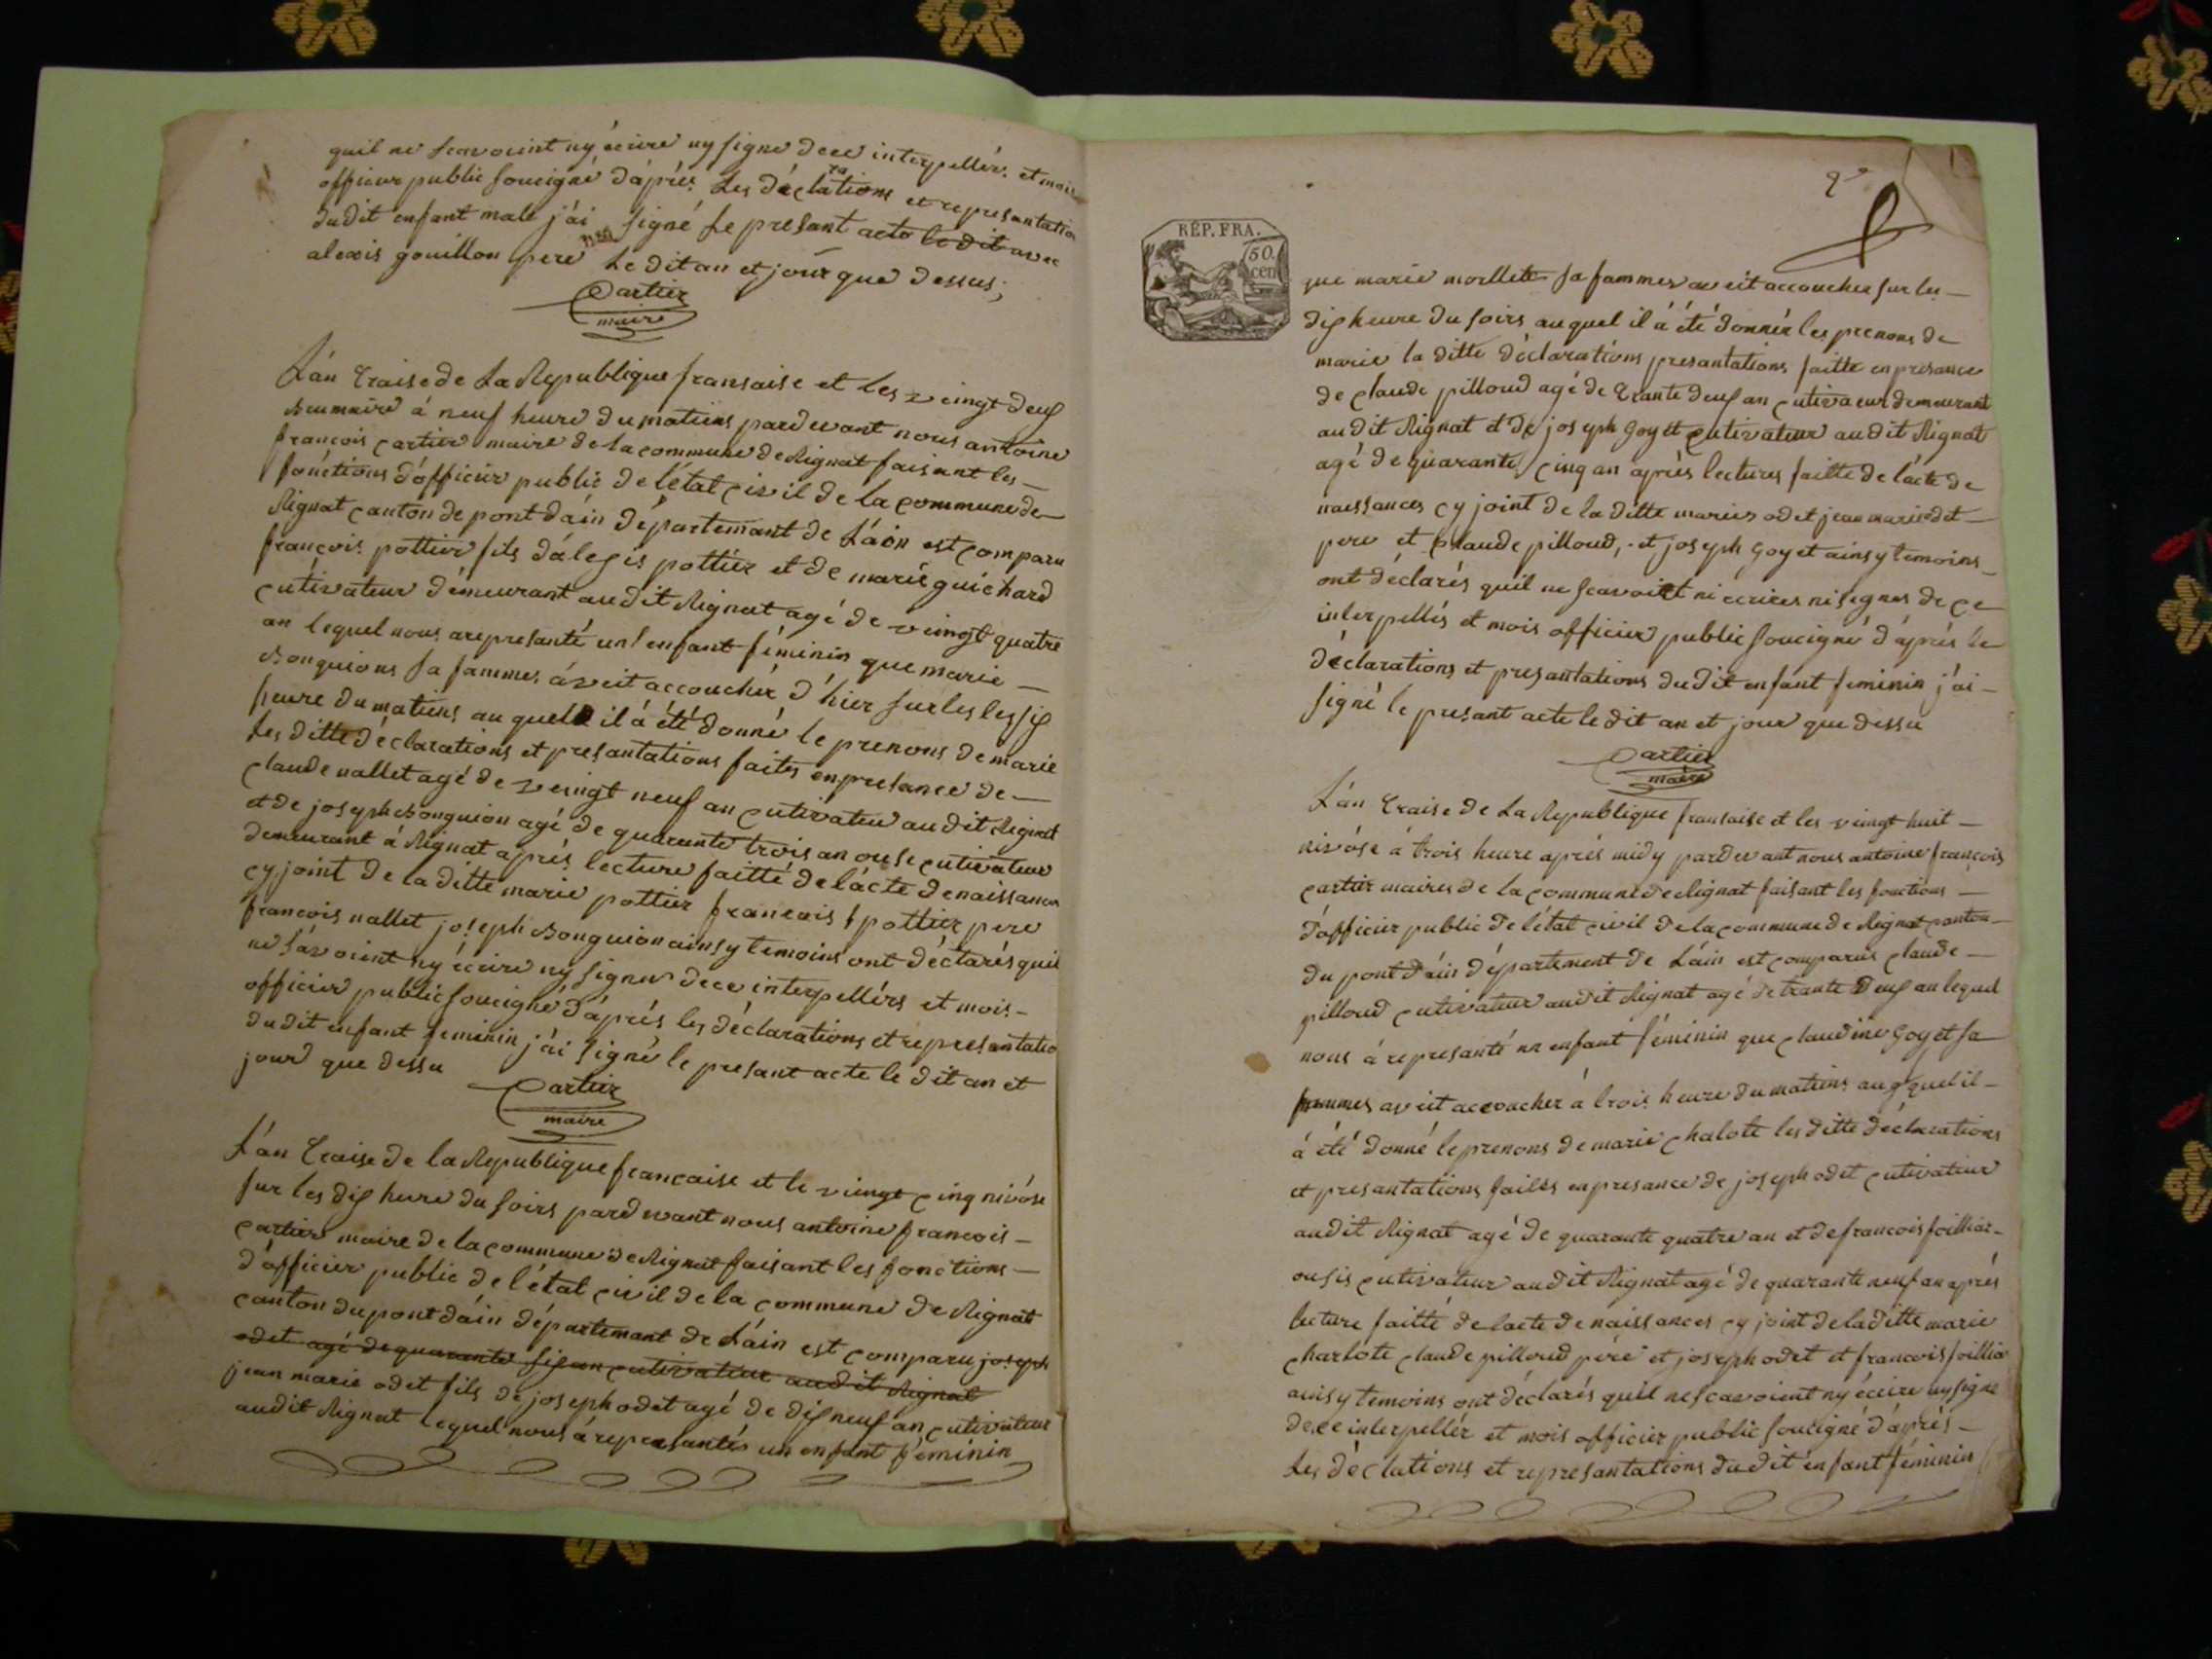 quil ne scavoient ny écrire ny signe de ce interpellér. et mois
officier public soucigné d'aprés Les déclations et represantation
ra
dudit enfant male j'ai signé Le presant acte le dit avec
alexis gouillon pere Le dit an et jour que dessus;
Cartier
maire
L'án traise de La Republique fransaise et les veingt deuf
Brumaire á neuf heure du matiens pardevant nous antoine
françois cartier maire de la commune de Rignat faisant les —
fonctions d'officier public de l'état civil de la commune de —
Rignat canton de pont d'ain département de L'áin est comparu
françois pottier fils d'alegis pottier et de marie guichard
cutivateur démeurant audit Rignat agé de veingt quatre
an lequel nous a represanté un enfant féminin que marie —
Bonguions sa fammes áveit accouchér d'hier sur les sis
heure du matiens au quel il á été donné le prenons de marie
Les ditte déclarations et presantations faites en presance de —
claude nallet agé de veingt neuf an cutivateu audit Rignat
et de joseph Bonguion agé de quarante trois an ousi cutivateur
demeurant á Rignat aprés lecture faitte de l'ácte de naissances
cy joint de la ditte marie pottier francais pottier pere
françois nallet joseph Bonguion ainsy temoins ont déclarés quil
ne sávoient ny écrire ny signer de ce interpellérs et mois —
officier public soucigné d'aprés les déclarations et represantatio
dudit enfant feminin j'ai signé le presant acte le dit an et
jour que dessu
Cartier
maire
L'án traise de la Republique française et le vingt cinq nivóse
sur les dis heure du soirs pardevant nous antoine francois —
cartier maire de la commune de Rignat faisant les fonctions —
d'officier public de l'état civil de la commune de Rignat
canton du pont d'ain départemant de L'áin est comparu joseph
odet agé de quarante sis an cutivateur audit Rignat
jean marie odet fils de joseph odet agé de dis neuf an cutivateur
audit Rignat lequel nous á represantés un enfant féminin
2e
RÉP. FRA.
50.
cen
que marie morllette sa fammes aveit accoucher sur les —
dis heure du soirs auquel il á été donnér les prenons de
marie la ditte déclarations presantations faitte en presance
de claude pilloud agé de trante deuf an cutivaeur demeurant
audit Rignat et de joseph Goyet cutivateur audit Rignat
agé de quarante cinq an aprés lectures faitte de l'ácte de
naissances cy joint de la ditte maries odet jean marie odet —
pere et claude pilloud, et joseph Goyet ainsy temoins —
ont déclarés quil ne scavoiet ni ecrires ni signes de ce
interpellés et mois officier public soucigné d'aprés le
déclarations et presantations dudit enfant feminin j'ái —
signé le presant acte le dit an et jour que dessu
Cartier
maire
L'án traise de La Republique fransaise et les veingt huit —
nivóse á trois heure aprés midy pardevant nous antoine françois
cartier maires de la commune de Rignat faisant les fonctions —
d'officier public de l'état civil de la commune de Rignat canton —
du pont d'áin département de L'áin est comparus claude —
pilloud cutivateur audit Rignat agé de trante deuf an lequel
nous á represanté un enfant féminin que claudine Goyet sa
fammes aveit accoucher á trois heure du matiens auquel il —
á été donné le prenons de marie chalote les ditte déclarations
et presantations failes en presance de joseph odet cutivateur
audit Rignat agé de quarante quatre an et de francois foilliar —
ousis cutivateur audit Rignat agé de quarante neuf an aprés
lecture faitté de lacte de naissances cy joint de la ditte marie
charlote claude pilloud pére et joseph odet et francois foilliar
ainsy temoins ont déclarés quil ne scavoient ny écrire ny signe
de ce interpellér et mois officier public soucigné d'áprés —
Les déclations et represantations dudit enfant féminin